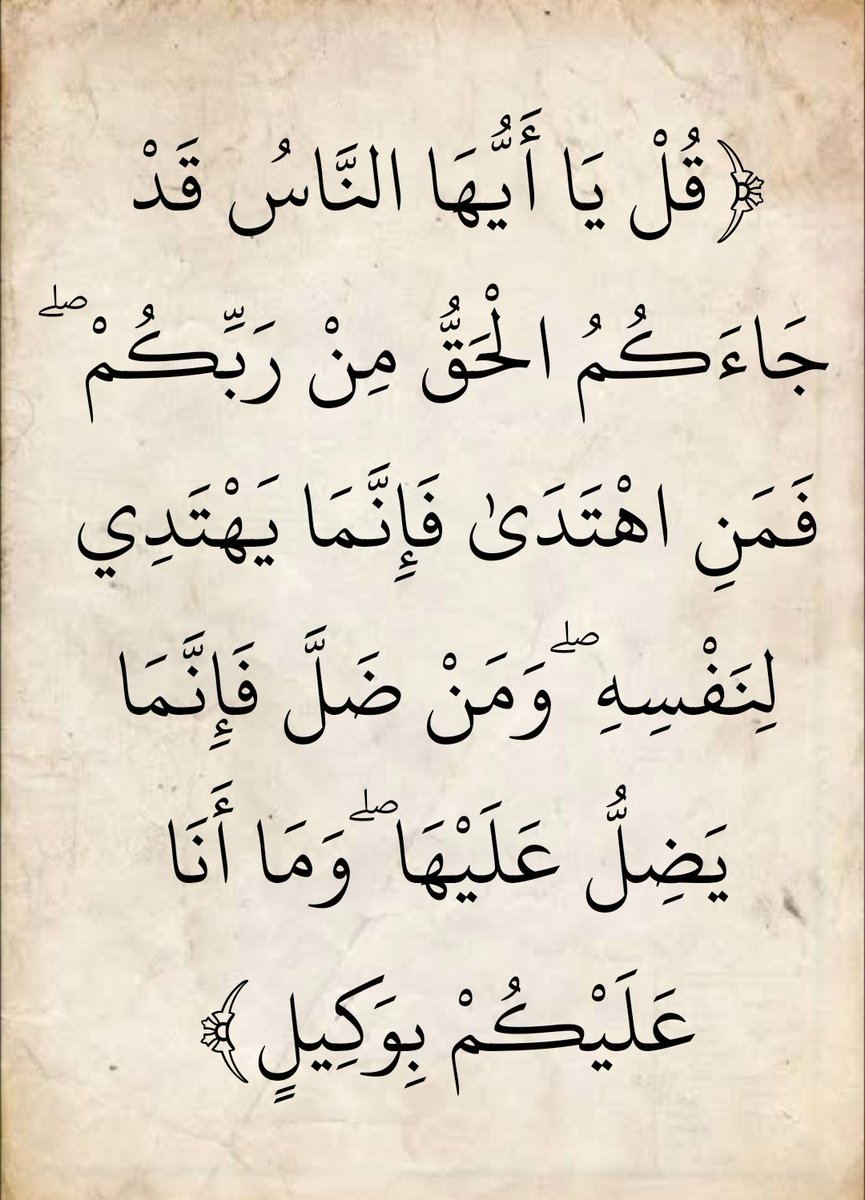 ﴿قُلْ يَا أَيُّهَا النَّاسُ قَدْ
جَاءَكُمُ الْحَقُّ مِنْ رَبِّكُمْ ۖ
فَمَنِ اهْتَدَىٰ فَإِنَّمَا يَهْتَدِي
لِنَفْسِهِ ۖ وَمَنْ ضَلَّ فَإِنَّمَا
يَضِلُّ عَلَيْهَا ۖ وَمَا أَنَا
عَلَيْكُمْ بِوَكِيلٍ﴾